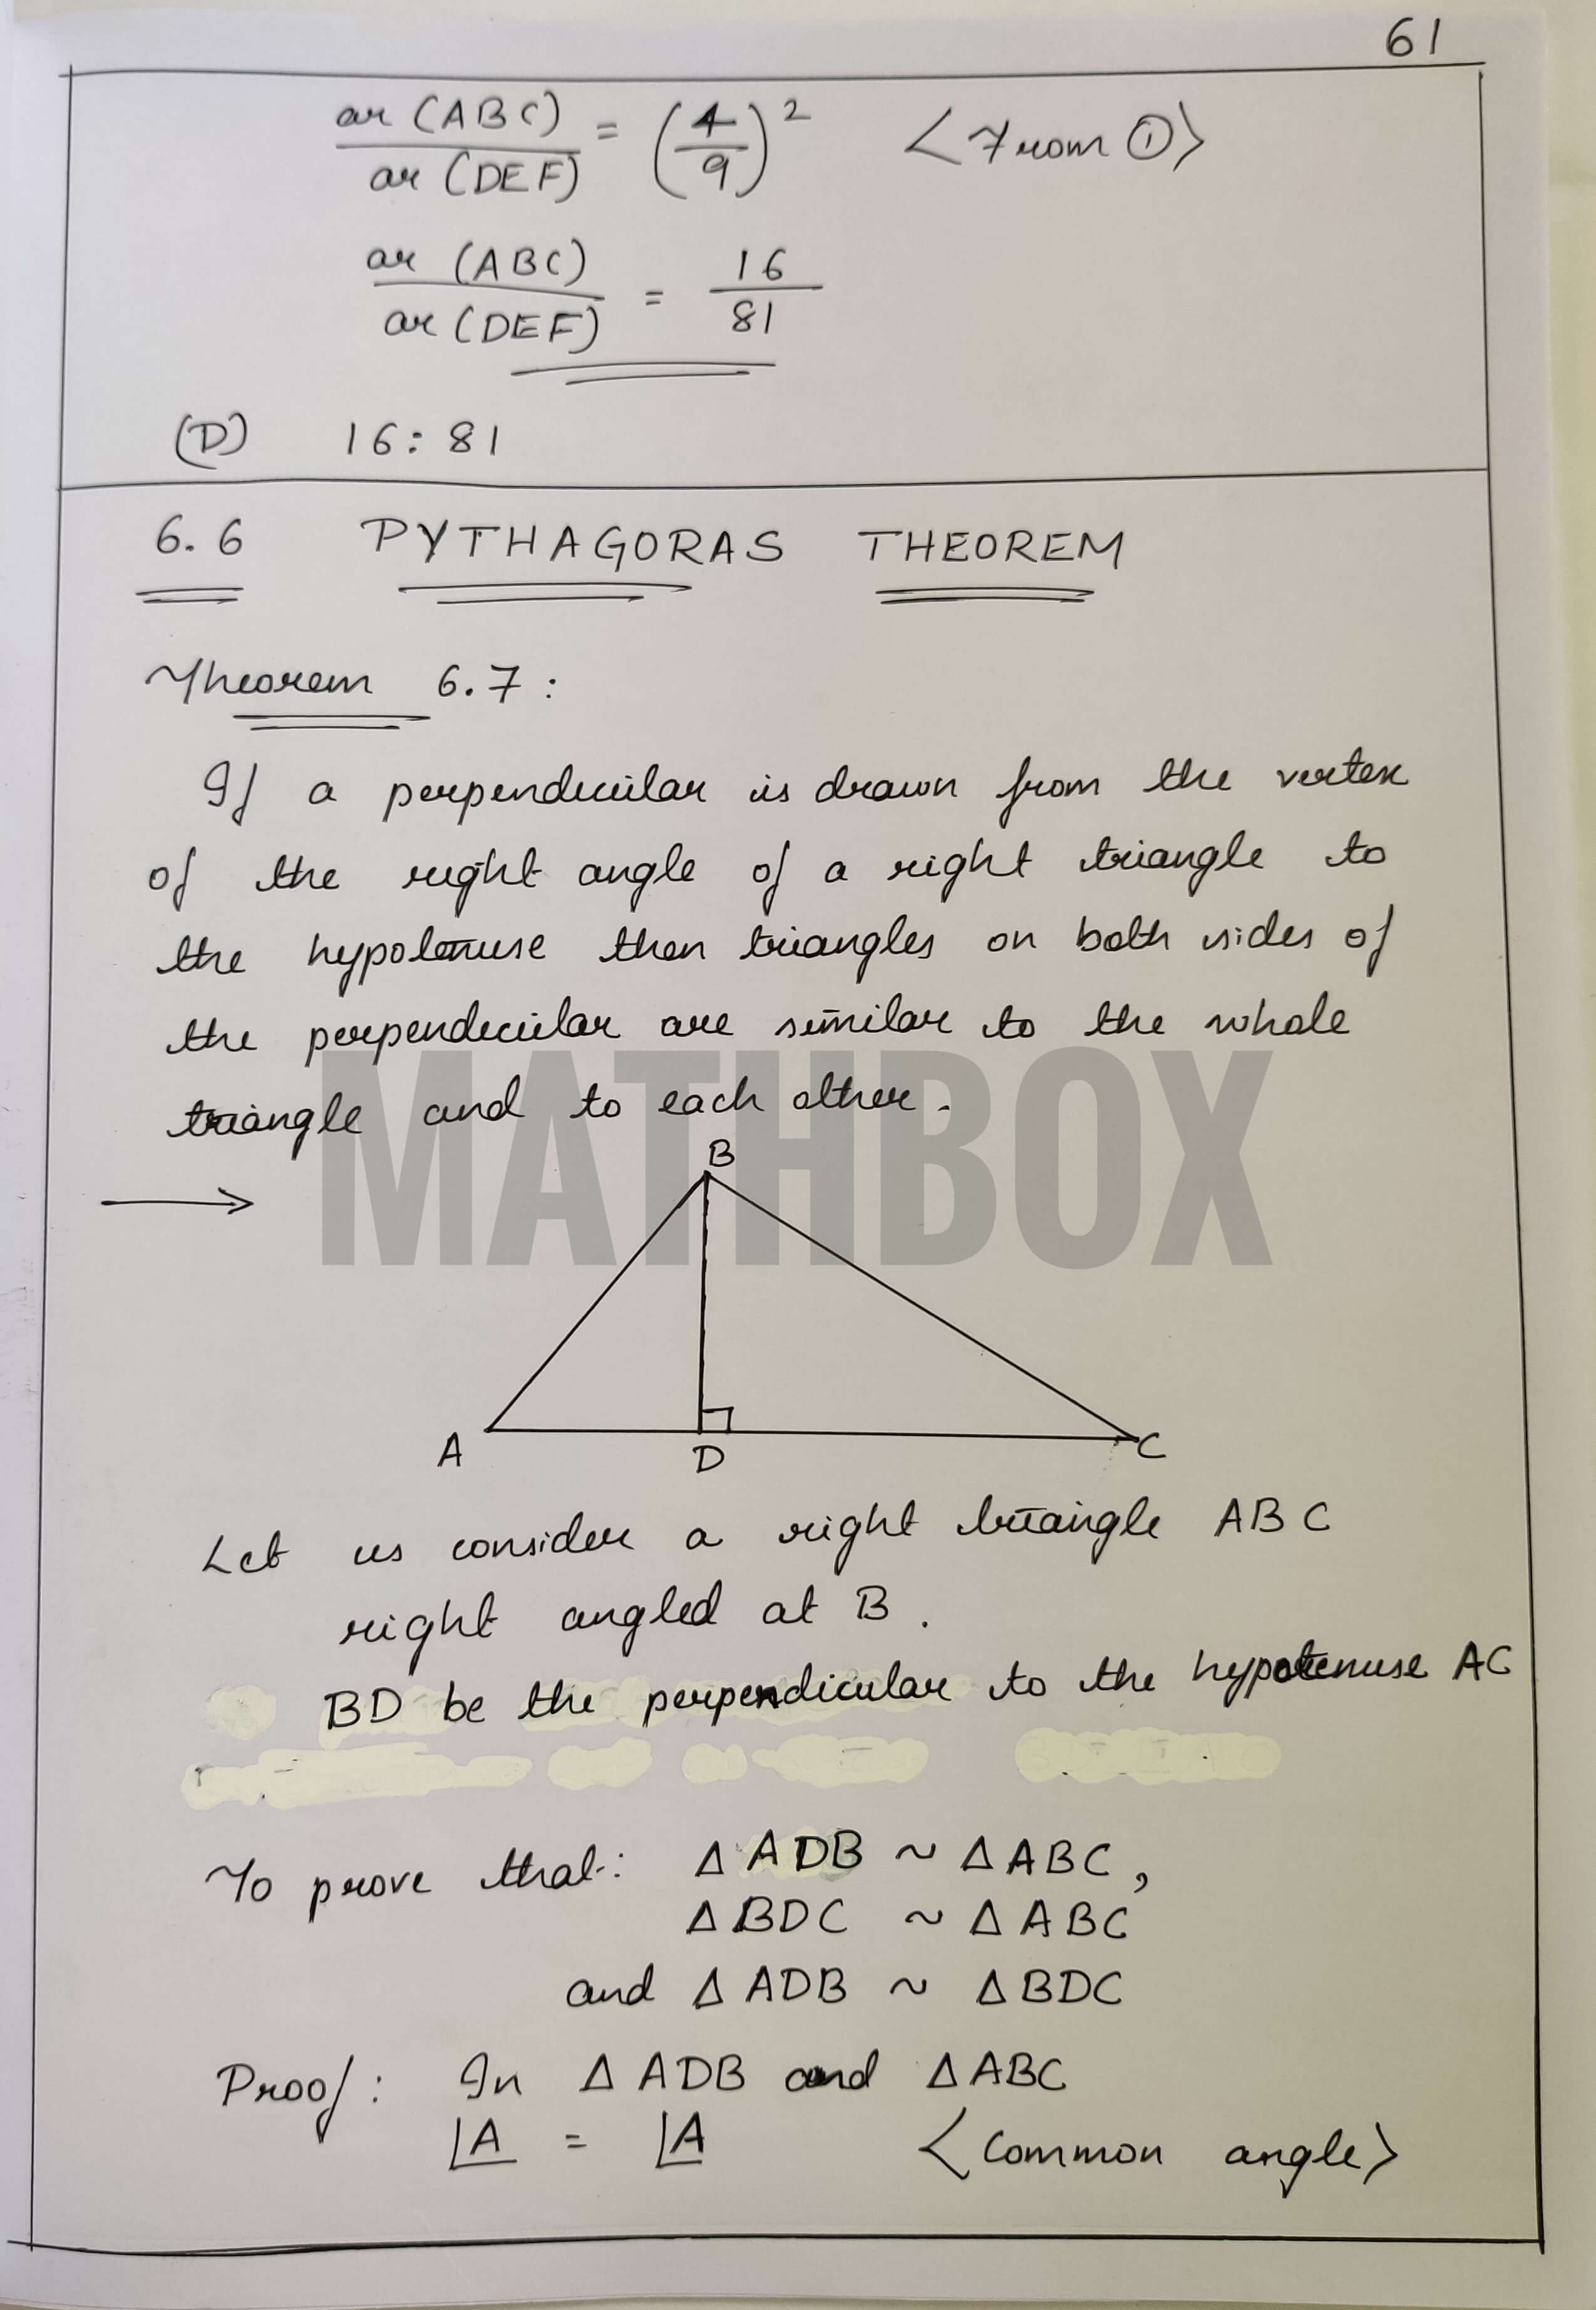 61
ar (ABC) / ar (DEF) = (4/9)² <From ①>
ar (ABC) / ar (DEF) = 16/81
(D) 16:81
6.6 PYTHAGORAS THEOREM
Theorem 6.7:
If a perpendicular is drawn from the vertex
of the right angle of a right triangle to
the hypotenuse then triangles on both sides of
the perpendicular are similar to the whole
triangle and to each other.
MATHBOX
→
B
A D C
Let us consider a right triangle ABC
right angled at B.
BD be the perpendicular to the hypotenuse AC
To prove that: Δ ADB ~ Δ ABC,
Δ BDC ~ Δ ABC
and Δ ADB ~ Δ BDC
Proof: In Δ ADB and Δ ABC
∠A = ∠A <Common angle>